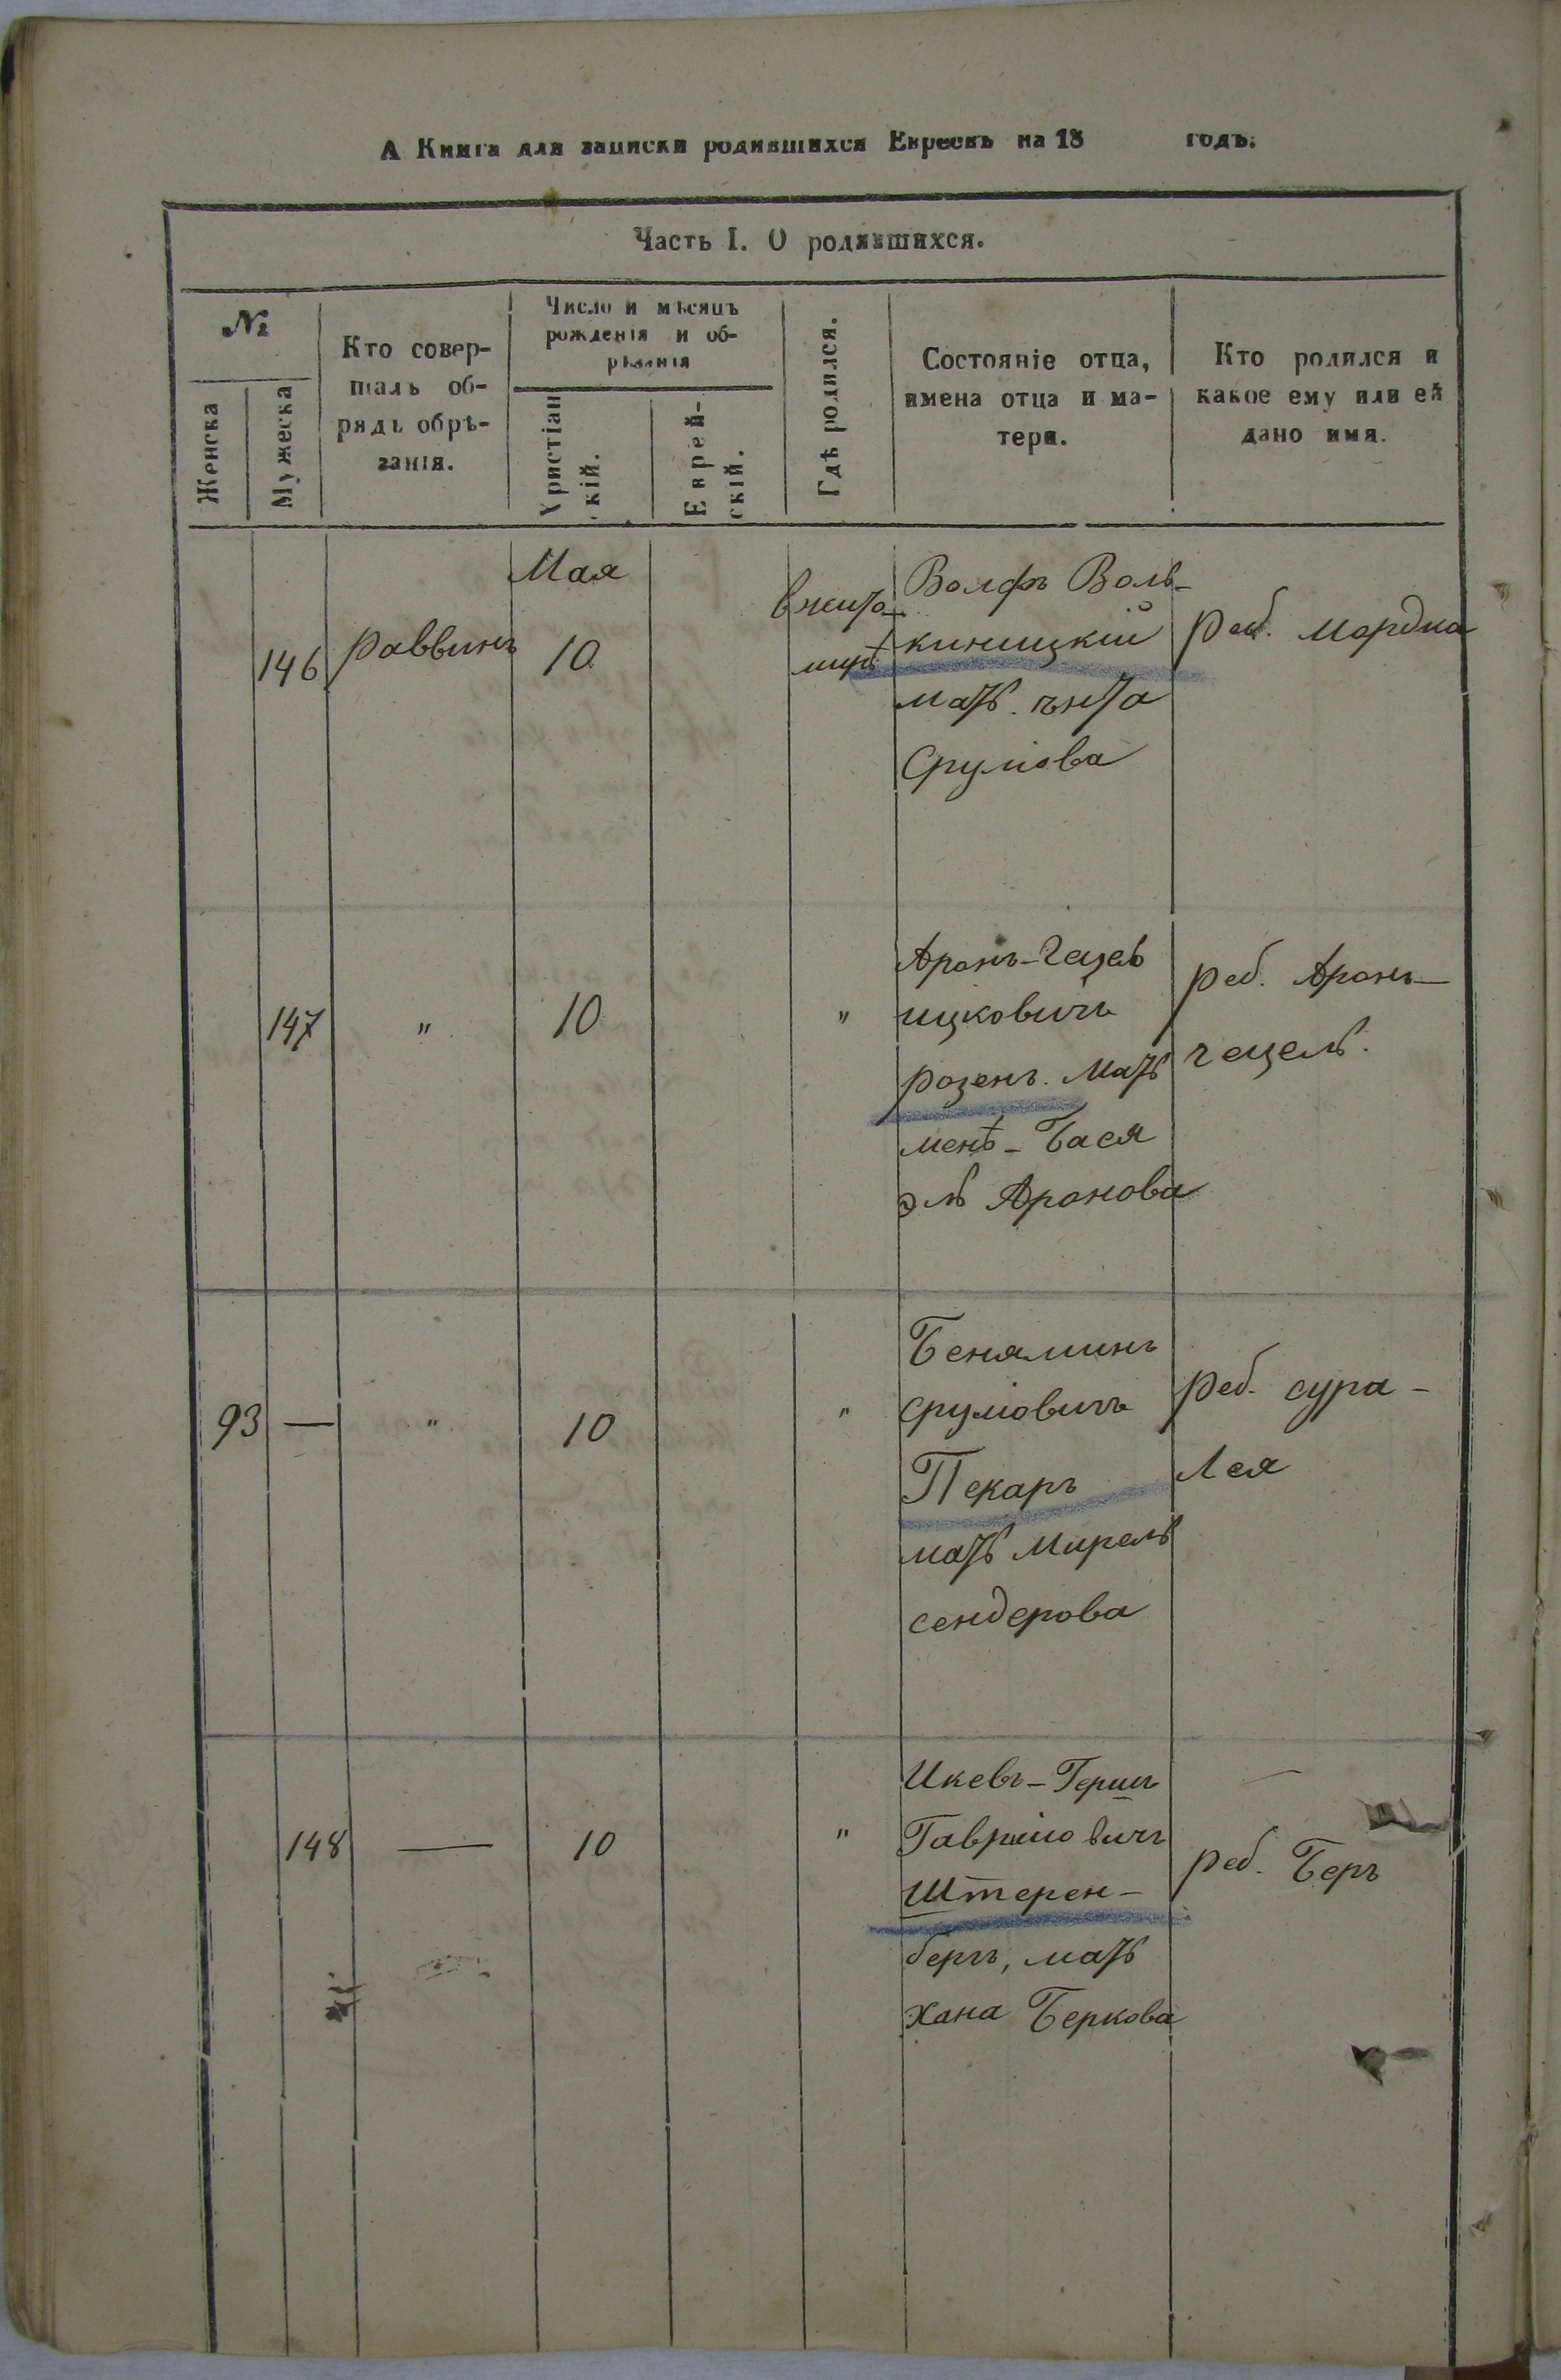 А Книга для записки родившихся Евреевъ на 18 годъ.
Часть I. О родившихся.
№
Женска
Мужеска
Кто совер-
шалъ об-
рядъ обрѣ-
занія.
Число и мѣсяцъ
рожденія и об-
рѣзанія
Христіан
скій.
Еврей-
скій.
Гдѣ родился.
Состояніе отца,
имена отца и ма-
тери.
Кто родился и
какое ему или ей
дано имя.
146
раввинъ
Мая
10
в жито-
мирѣ
Волфъ Воль-
киницкій
мать
Срулiова
Реб. Мордка
147
"
10
"
Аронъ-Гецель
ицковичъ
розенъ. Мать
менѣ-Бася
Аронова
Реб. Аронъ-
гецель.
93
—
"
10
"
Бенямин
срулiовичъ
Пекаръ
мать Мирель
сендерова
Реб. сура-
Лея
148
—
10
"
Икевъ-Гершъ
Гаврилiовичъ
Штерен-
бергъ, мать
хана Беркова
Реб. Беръ